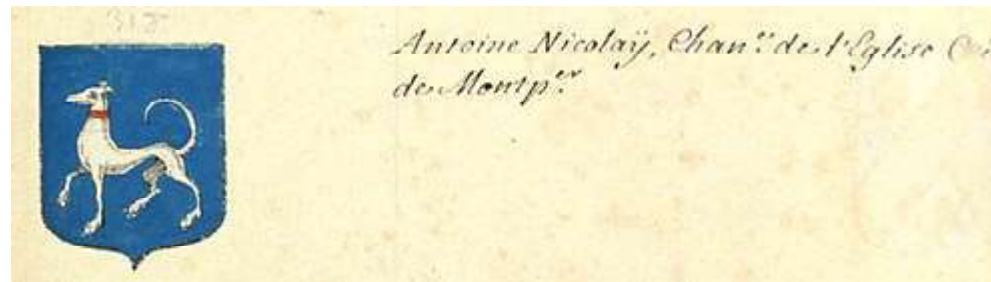 313
Antoine Nicolaÿ, Chan.ᵉ de l'Eglise
de Montp.ᵉʳ